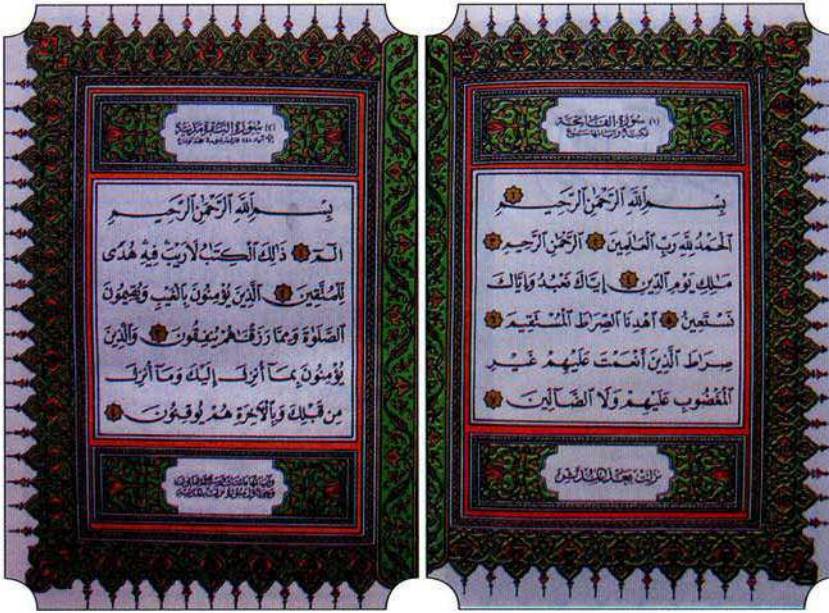 (١) سُورَةُ الفَاتِحَةِ
مَكِّيَّة وَآيَاتُهَا سَبْع
بِسْمِ ٱللَّهِ ٱلرَّحْمَٰنِ ٱلرَّحِيمِ ١
ٱلْحَمْدُ لِلَّهِ رَبِّ ٱلْعَالَمِينَ ٢ ٱلرَّحْمَٰنِ ٱلرَّحِيمِ ٣
مَٰلِكِ يَوْمِ ٱلدِّينِ ٤ إِيَّاكَ نَعْبُدُ وَإِيَّاكَ
نَسْتَعِينُ ٥ ٱهْدِنَا ٱلصِّرَاطَ ٱلْمُسْتَقِيمَ ٦
صِرَاطَ ٱلَّذِينَ أَنْعَمْتَ عَلَيْهِمْ غَيْرِ
ٱلْمَغْضُوبِ عَلَيْهِمْ وَلَا ٱلضَّالِّينَ ٧
نزلت بعد المدثر
(٢) سُورَةُ البَقَرَة مَدَنِيَّة
بِسْمِ ٱللَّهِ ٱلرَّحْمَٰنِ ٱلرَّحِيمِ
الٓمٓ ١ ذَٰلِكَ ٱلْكِتَٰبُ لَا رَيْبَ فِيهِ هُدًى
لِلْمُتَّقِينَ ٢ ٱلَّذِينَ يُؤْمِنُونَ بِٱلْغَيْبِ وَيُقِيمُونَ
ٱلصَّلَوٰةَ وَمِمَّا رَزَقْنَٰهُمْ يُنفِقُونَ ٣ وَٱلَّذِينَ
يُؤْمِنُونَ بِمَآ أُنزِلَ إِلَيْكَ وَمَآ أُنزِلَ
مِن قَبْلِكَ وَبِٱلْآخِرَةِ هُمْ يُوقِنُونَ ٤